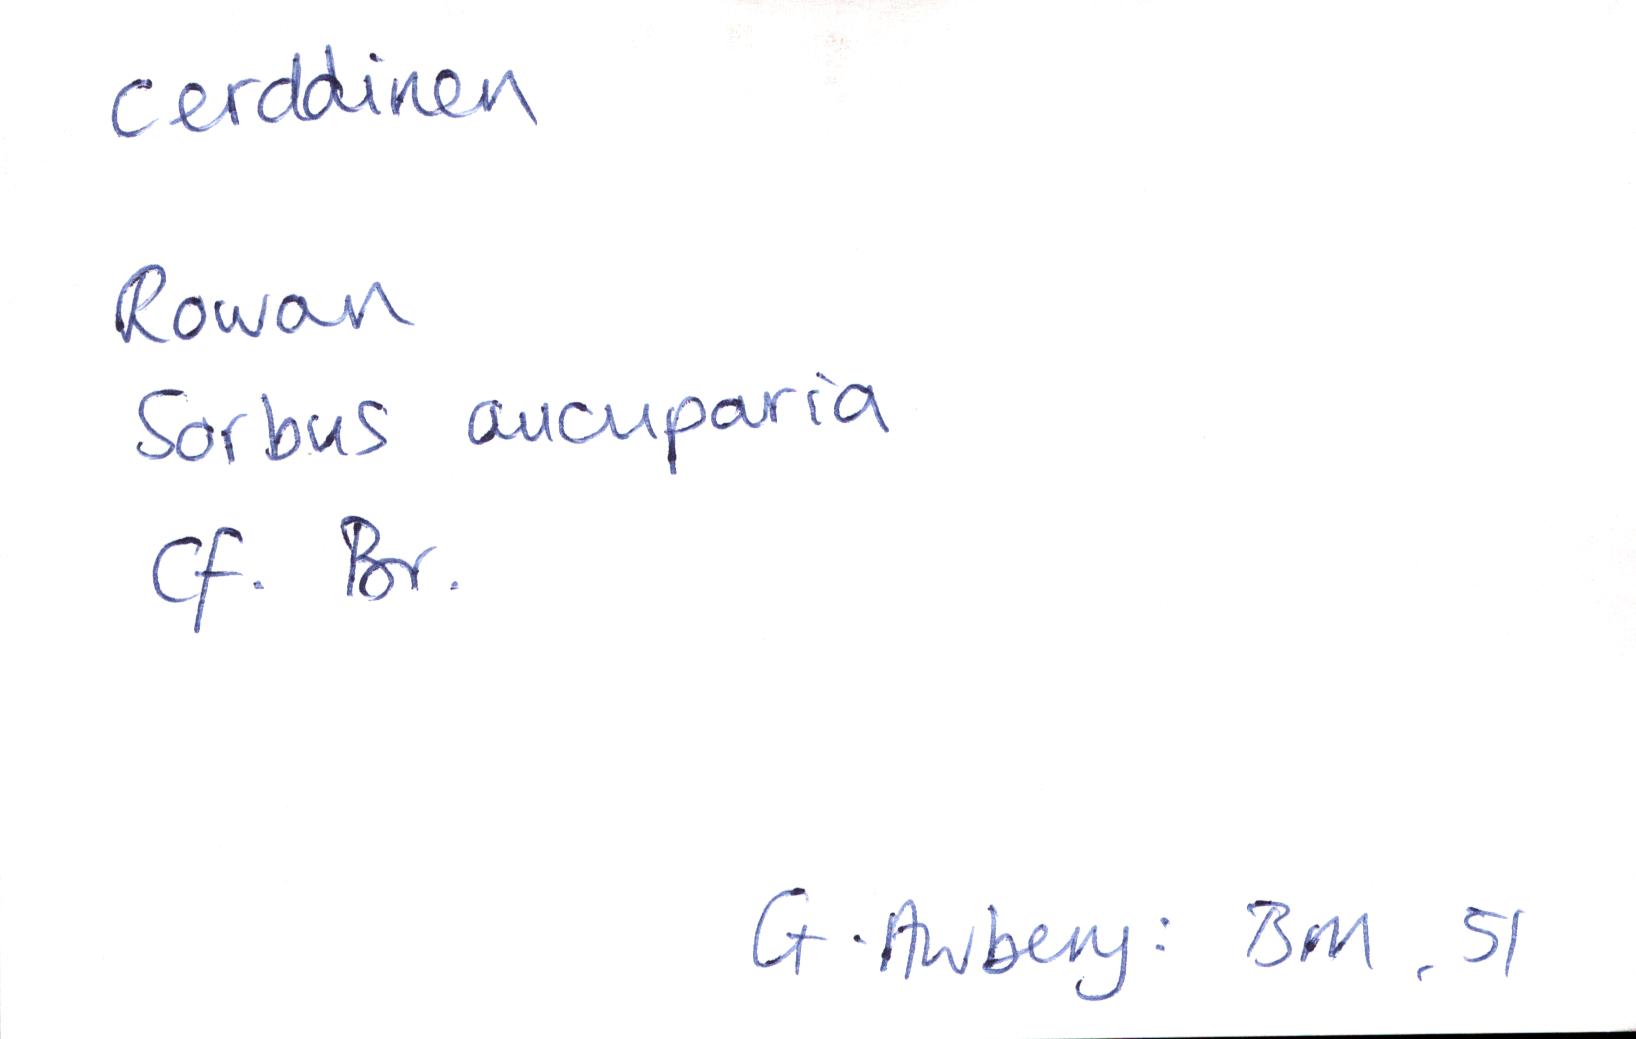 cerddinen
Rowan
Sorbus aucuparia
Cf. Br.
G. Awbery: BM, 51